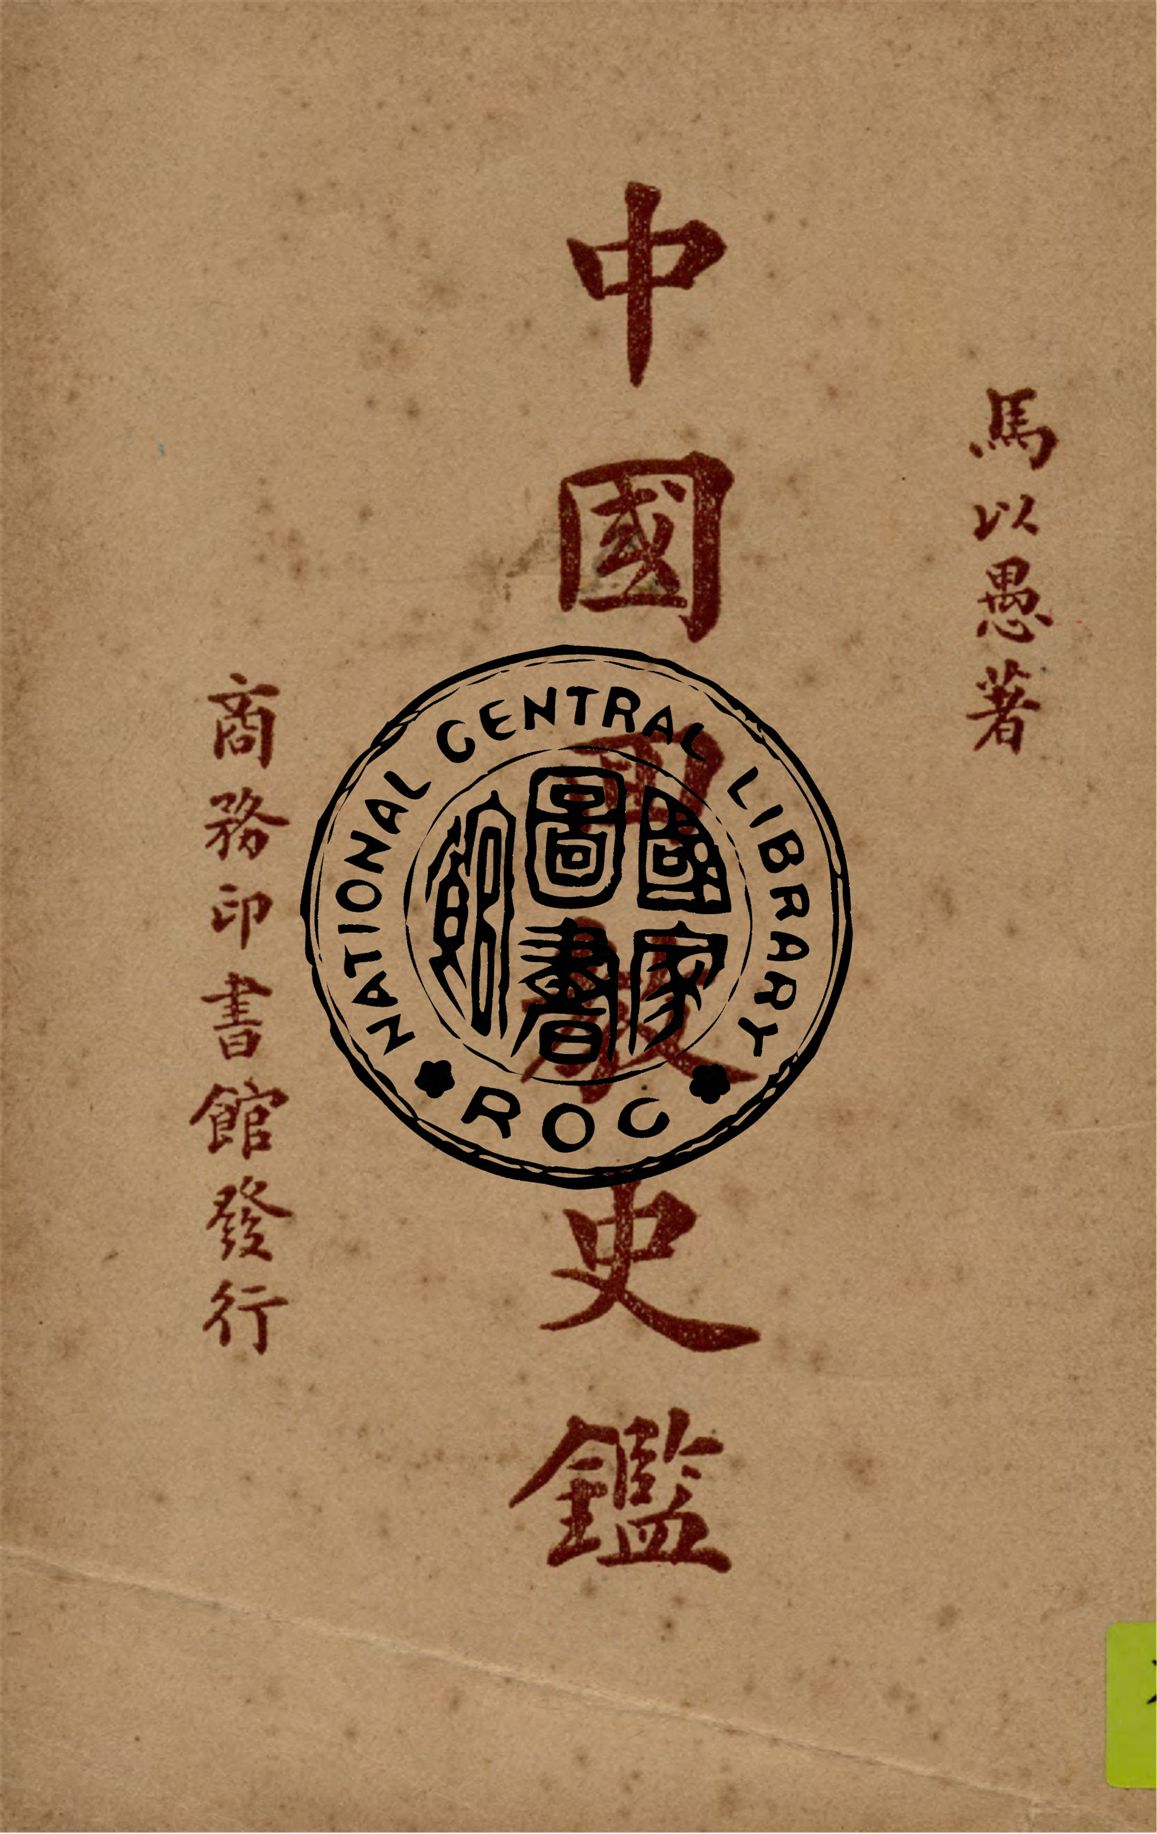 馬以愚著
中國回教史鑑
商務印書館發行
NATIONAL CENTRAL LIBRARY
ROC
國家圖書館